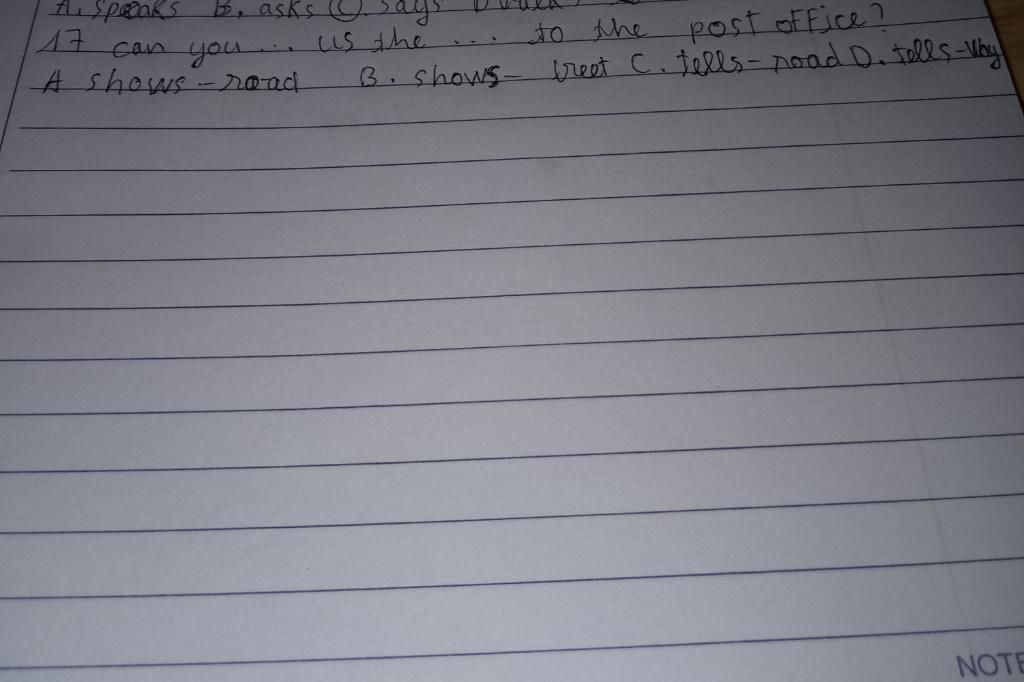 A. speaks B. asks C. says D
17 can you ... us the ... to the post office?
A shows - road B. shows - C. tells - road D. tells - Way
NOTE